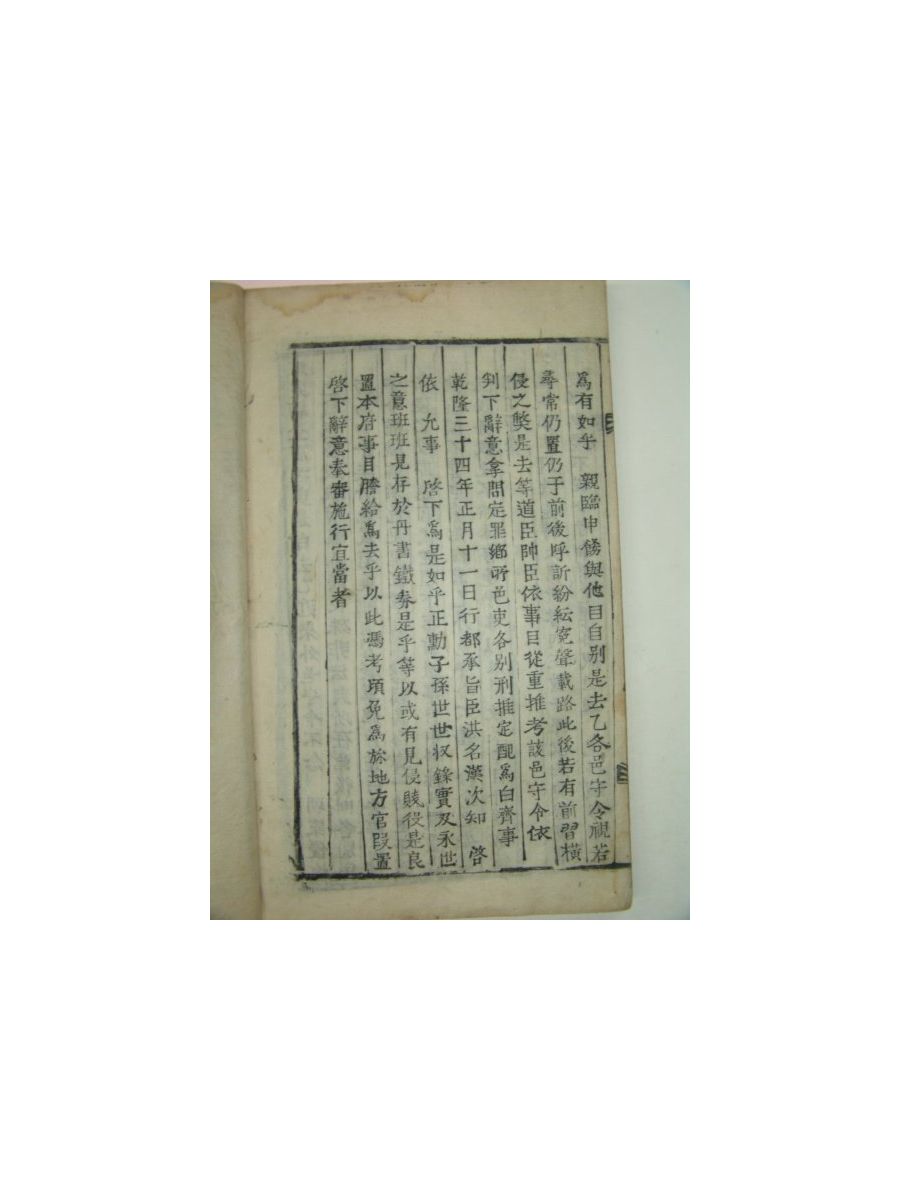 爲有如乎 親臨申飭與他目自別是去乙各邑守令視若
尋常仍置仍于前後呼訴紛紜寃聲載路此後若有前習橫
侵之獘是去等道臣帥臣依事目從重推考該邑守令依
判下辭意拿問定罪鄕所色吏各別刑推定配爲白齊事
乾隆三十四年正月十一日行都承旨臣洪名漢次知 啓
依 允事 啓下爲是如乎正勳子孫世世収錄實及永世
之意班班見存於丹書鐵券是乎等以或有見侵賤役是良
置本府事目謄給爲去乎以此馮考頉免爲旀地方官叚置
啓下辭意奉審施行宜當者